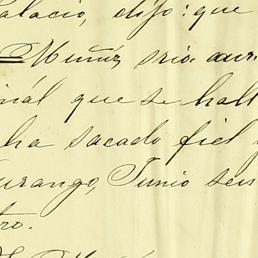 alacio, dijo: que
Muñiz, srio. aux.
inal que se hall
ha sacado fiel y
urango, Junio seis
tro.